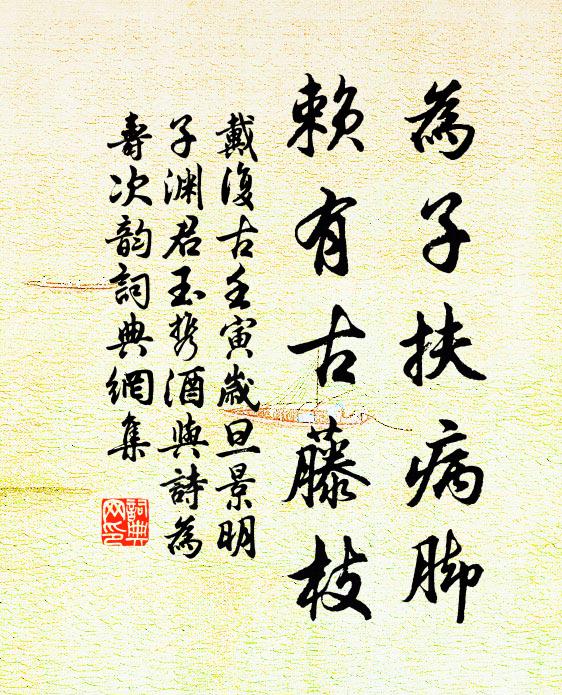 為子扶病脚
賴有古藤枝
戴復古壬寅歲旦景明
子渊君玉携酒與詩為
壽次韵詞典網集
詞典
网印